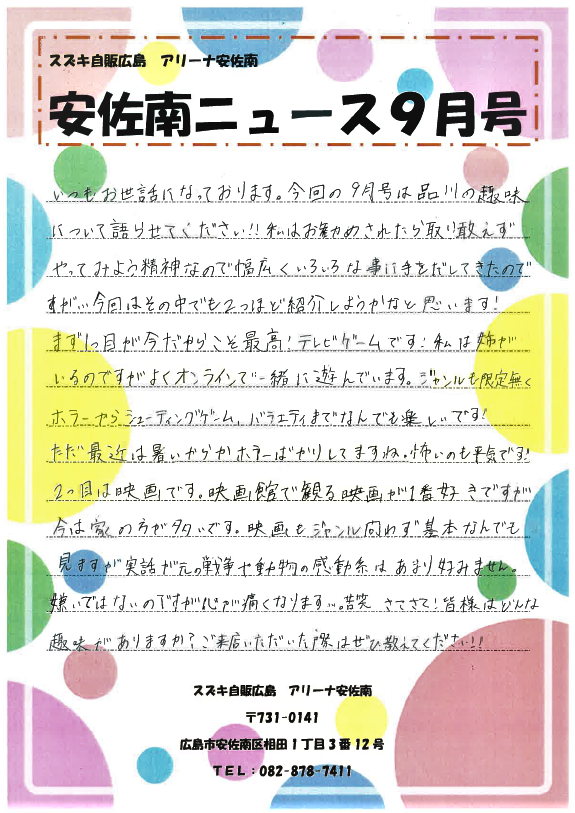 スズキ自販広島 アリーナ安佐南
安佐南ニュース9月号
いつもお世話になっております。今回の9月号は品川の趣味
について語らせてください!!私はお勧めされたら取り敢えず
やってみよう精神なので幅広くいろいろな事に手をだしてきたので
すが…今回はその中でも2つほど紹介しようかなと思います!
まず1つ目が今だからこそ最高!テレビゲームです!私は姉が
いるのですがよくオンラインで一緒に遊んでいます。ジャンルも限定無く
ホラーからシューティングゲーム、バラエティまでなんでも楽しいです!
ただ最近は暑いからかホラーばかりしてますね。怖いのも平気です!
2つ目は映画です。映画館で観る映画が1番好きですが
今は家の方が多いです。映画もジャンル問わず基本なんでも
見ますが実話が元の戦争や動物の感動系はあまり好みません。
嫌いではないのですが心が痛くなります…。苦笑 さてさて!皆様はどんな
趣味がありますか?ご来店いただいた際はぜひ教えてください!!
スズキ自販広島 アリーナ安佐南
〒731-0141
広島市安佐南区相田1丁目3番12号
TEL:082-878-7411